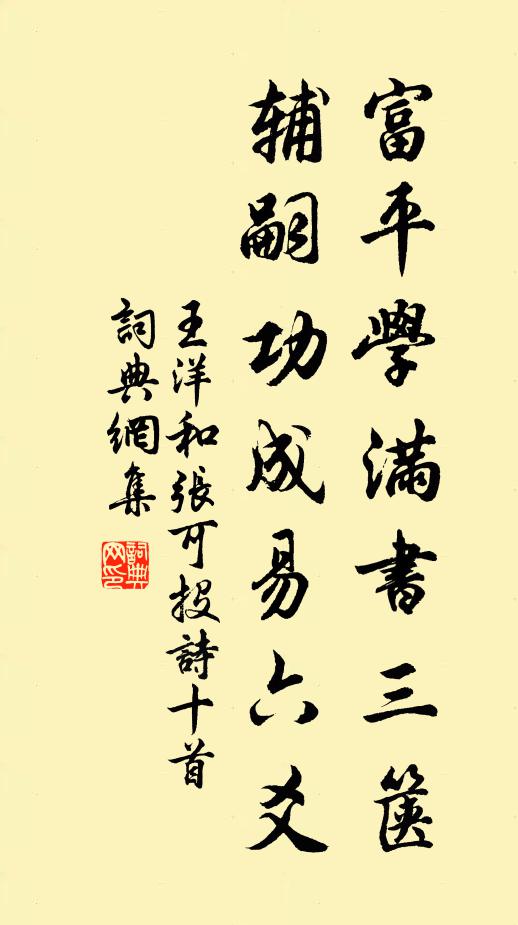 富平學滿書三篋
辅嗣功成易六爻
王洋和張可投詩十首
詞典網集
詞典網印